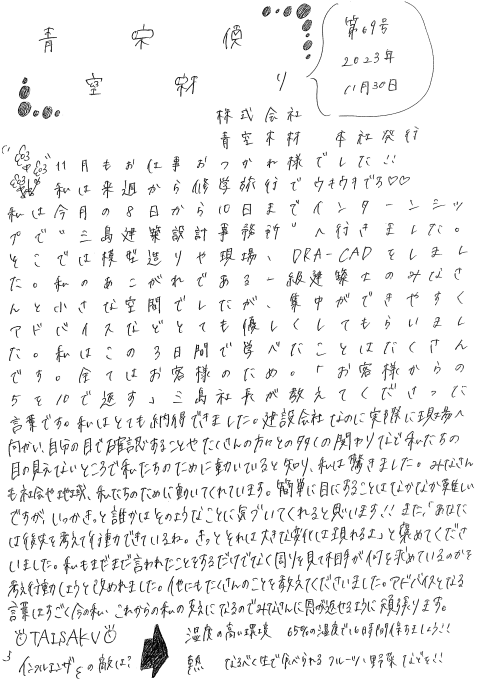 青空便り
第69号
2023年
11月30日
株式会社
青空木材 本社発行
11月もお仕事おつかれ様でした!!
私は来週から修学旅行でウキウキです♡♡
私は今月の8日から10日までインターンシッ
プで"三島建築設計事務所"へ行きました。
そこでは模型造りや現場、DRA-CADをしまし
た。私のあこがれである一級建築士のみなさ
んと小さな空間でしたが、集中ができやすく
アドバイスなどとても優しくしてもらいまし
た。私はこの3日間で学べたことはたくさん
です。全てはお客様のため。「お客様からの
5を10で返す」三島社長が教えてくださった
言葉です。私はとても納得できました。建設会社なのに実際に現場へ
向かい、自分の目で確認することやたくさんの方々との多くの関わりなど私たちの
目の見えないところで私たちのために動いていると知り、私は驚きました。みなさん
も社会や地域、私たちのために動いてくれています。簡単に目にすることはなかなか難しい
ですが、いつかきっと誰かはそのようなことに気づいてくれると思います!!また、「あなた
は後先を考えて行動できているね。きっとそれは大きな変化には現れるよ」と褒めてくださ
いました。私もまだまだ言われたことをするだけでなく周りを見て相手が何を求めているのかを
考え行動しようと改めれました。他にもたくさんのことを教えてくださいました。アドバイスとなる
言葉はすごく今の私、これからの私の支えになるのでみなさんに恩が返せるように頑張ります。
TAISAKU
湿度の高い環境 65%の湿度で16時間保ちましょう!!
インフルエンザの敵は?
熱 なるべく生で食べられるフルーツ、野菜などを!!